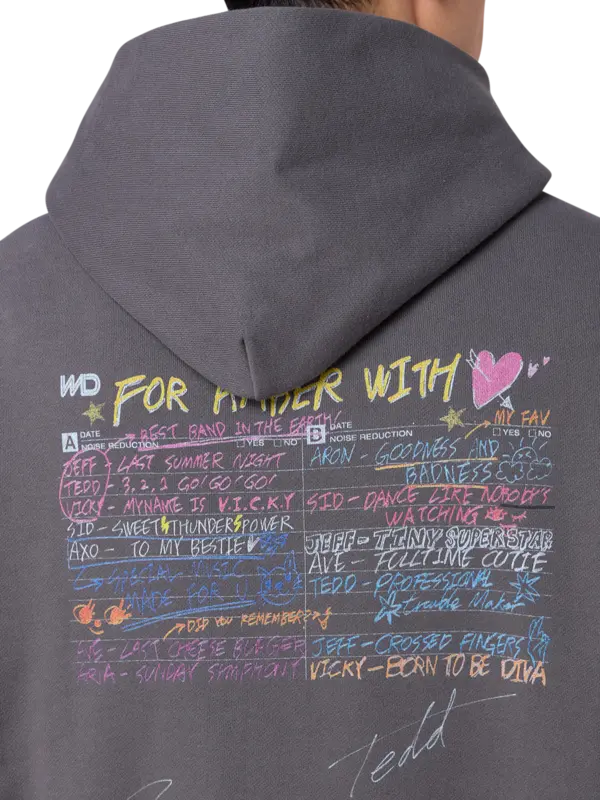 WD
FOR AMBER WITH
BEST BAND IN THE EARTH!
MY FAV
A DATE
NOISE REDUCTION YES NO
JEFF - LAST SUMMER NIGHT
TEDD - 3, 2, 1 GO! GO! GO!
VICKY - MYNAME IS V.I.C.K.Y
SID - SWEET THUNDERSPOWER
AXO - TO MY BESTIE
SPECIAL MUSIC
MADE FOR U
DID YOU REMEMBER?
AVE - LAST CHEESE BURGER
ARIA - SUNDAY SYMPHONY
B DATE
NOISE REDUCTION YES NO
ARON - GOODNESS AND
BADNESS
SID - DANCE LIKE NOBODY'S
WATCHING
JEFF - TINY SUPERSTAR
AVE - FULLTIME CUTIE
TEDD - PROFESSIONAL
Trouble Maker
JEFF - CROSSED FINGERS
VICKY - BORN TO BE DIVA
Tedd